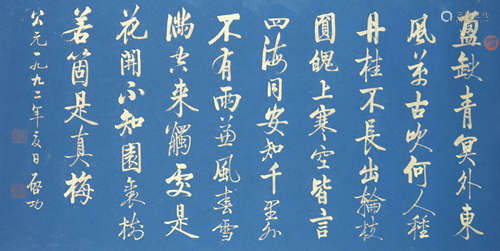 盈缺青冥外東
風萬古吹何人種
丹桂不長出輪枝
圓魄上寒空皆言
四海同安知千里外
不有雨兼風春雪
滿空来觸處是
花開不知園裏樹
若箇是真梅
公元一九九二年夏日 啟功